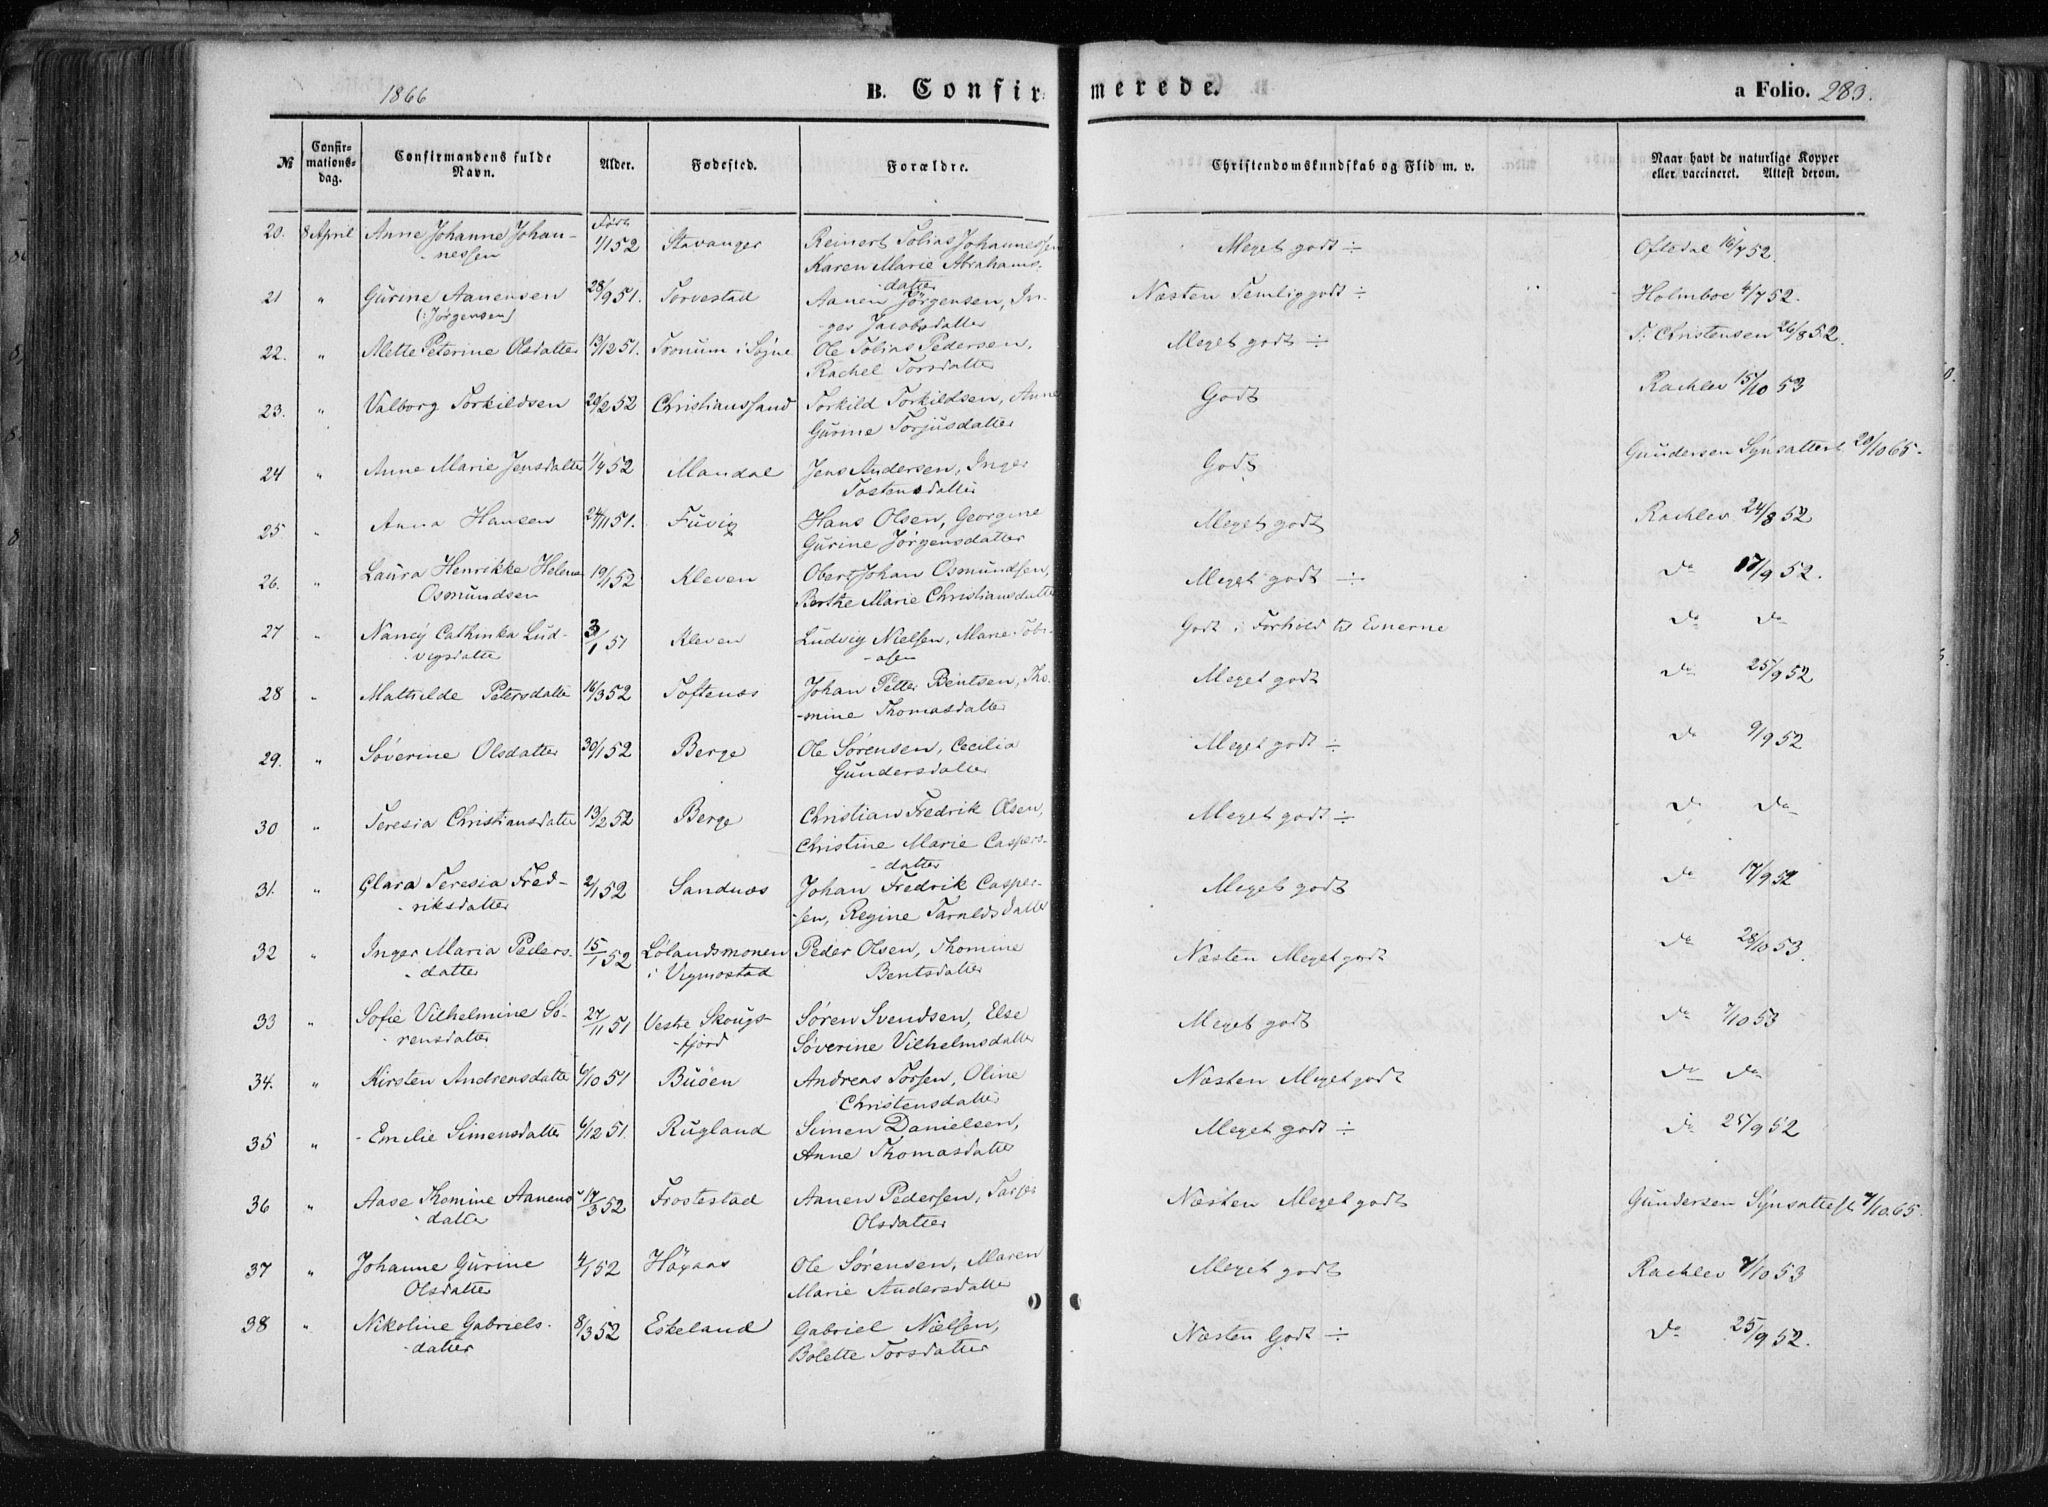 1866 B. Confirmerede. a Folio. 283.
№ Confirmationsdag. Confirmandens fulde Navn. Alder. Fødested. Forældre. Christendomskundskab og Flid m. v. Naar havt de naturlige Kopper eller vaccineret. Attest derom.
20. 8 April Anne Johanne Johan- 1/1 52 Stavanger Reinert Tobias Johannessen Meget godt ÷ Oftedal 16/7 52.
-nessen Karen Marie Abrahams-
-datter
21 " Gurine Aanensen 28/9 51. Torvestad Aanen Jørgensen, In- Næsten Temlig godt ÷ Holmboe 4/7 52.
(: Jørgensen) -ger Jacobsdatter
22. " Mette Peterine Olsdatter 13/12 51. Tronum i Søgne Ole Tobias Pedersen, Meget godt ÷ T. Christensen 26/8 52.
Rachel Torsdatter
23. " Valborg Torkildsen 20/2 52 Christianssand Torkild Torkildsen, Anne Godt Rachlev 15/10 53
Gurine Torjusdatter
24 " Anne Marie Jensdatter 1/4 52 Mandal Jens Andersen, Inger Godt Gundersen Synsattest 20/10 65.
Tostensdatter
25. " Anna Hansen 24/11 51. Fuvig Hans Olsen, Georgine Meget godt Rachlev 24/8 52
Gurine Jørgensdatter
26. " Laura Henrikke Helene 19/1 52 Kleven Obert Johan Osmundsen, Meget godt ÷ do 17/9 52.
Osmundsen Berthe Marie Christiansdatter
27 " Nancy Cathinka Lud- 3/1 51 Kleven Ludvig Nielsen, Marie Tobi- Godt i Forhold til Evnerne do do
-vigsdatter -asen
28 " Mathilde Petersdatter 16/3 52 Toftenæs Johan Petter Bentsen, Tho- Meget godt do 25/9 52
-mine Thomasdatter
29. " Søverine Olsdatter 30/1 52 Berge Ole Sørensen, Cecilia Meget godt ÷ do 9/9 52
Gundersdatter
30 " Teresia Christiansdatter 13/2 52 Berge Christian Fredrik Olsen, Meget godt ÷ do do
Christine Marie Caspers-
-datter
31. " Clara Teresia Fred- 2/1 52 Sandnæs Johan Fredrik Casper- Meget godt do 17/9 52
-riksdatter -sen, Regine Taraldsdatter
32 " Inger Maria Peders- 15/1 52 Lølandsmonen Peder Olsen, Thomine Næsten Meget godt do 28/10 53.
-datter i Vigmostad Bentsdatter
33 " Sofie Vilhelmine Sø- 27/11 51 Vestre Skougs- Søren Svendsen, Else Meget godt do 7/10 53
-rensdatter -fjord Søverine Vilhelmsdatter
34. " Kirsten Andreasdatter 6/10 51 Buøen Andreas Torsen, Oline Næsten Meget godt do do
Christensdatter
35 " Emilie Simensdatter 6/12 51. Rugland Simen Danielsen, Meget godt ÷ do 25/9 52
Anne Thomasdatter
36 " Aase Thomine Aanens- 17/3 52 Frostestad Aanen Pedersen, Næsten Meget godt Gundersen Synsattest 7/10 65.
-datter Olsdatter
37 " Johanne Gurine 4/1 52 Høyaas Ole Sørensen, Maren Meget godt Rachlev 7/10 53
Olsdatter Marie Andersdatter
38 " Nikoline Gabriels- 8/3 52 Eskeland Gabriel Nielsen, Næsten Godt ÷ do 25/9 52.
-datter Bolette Torsdatter